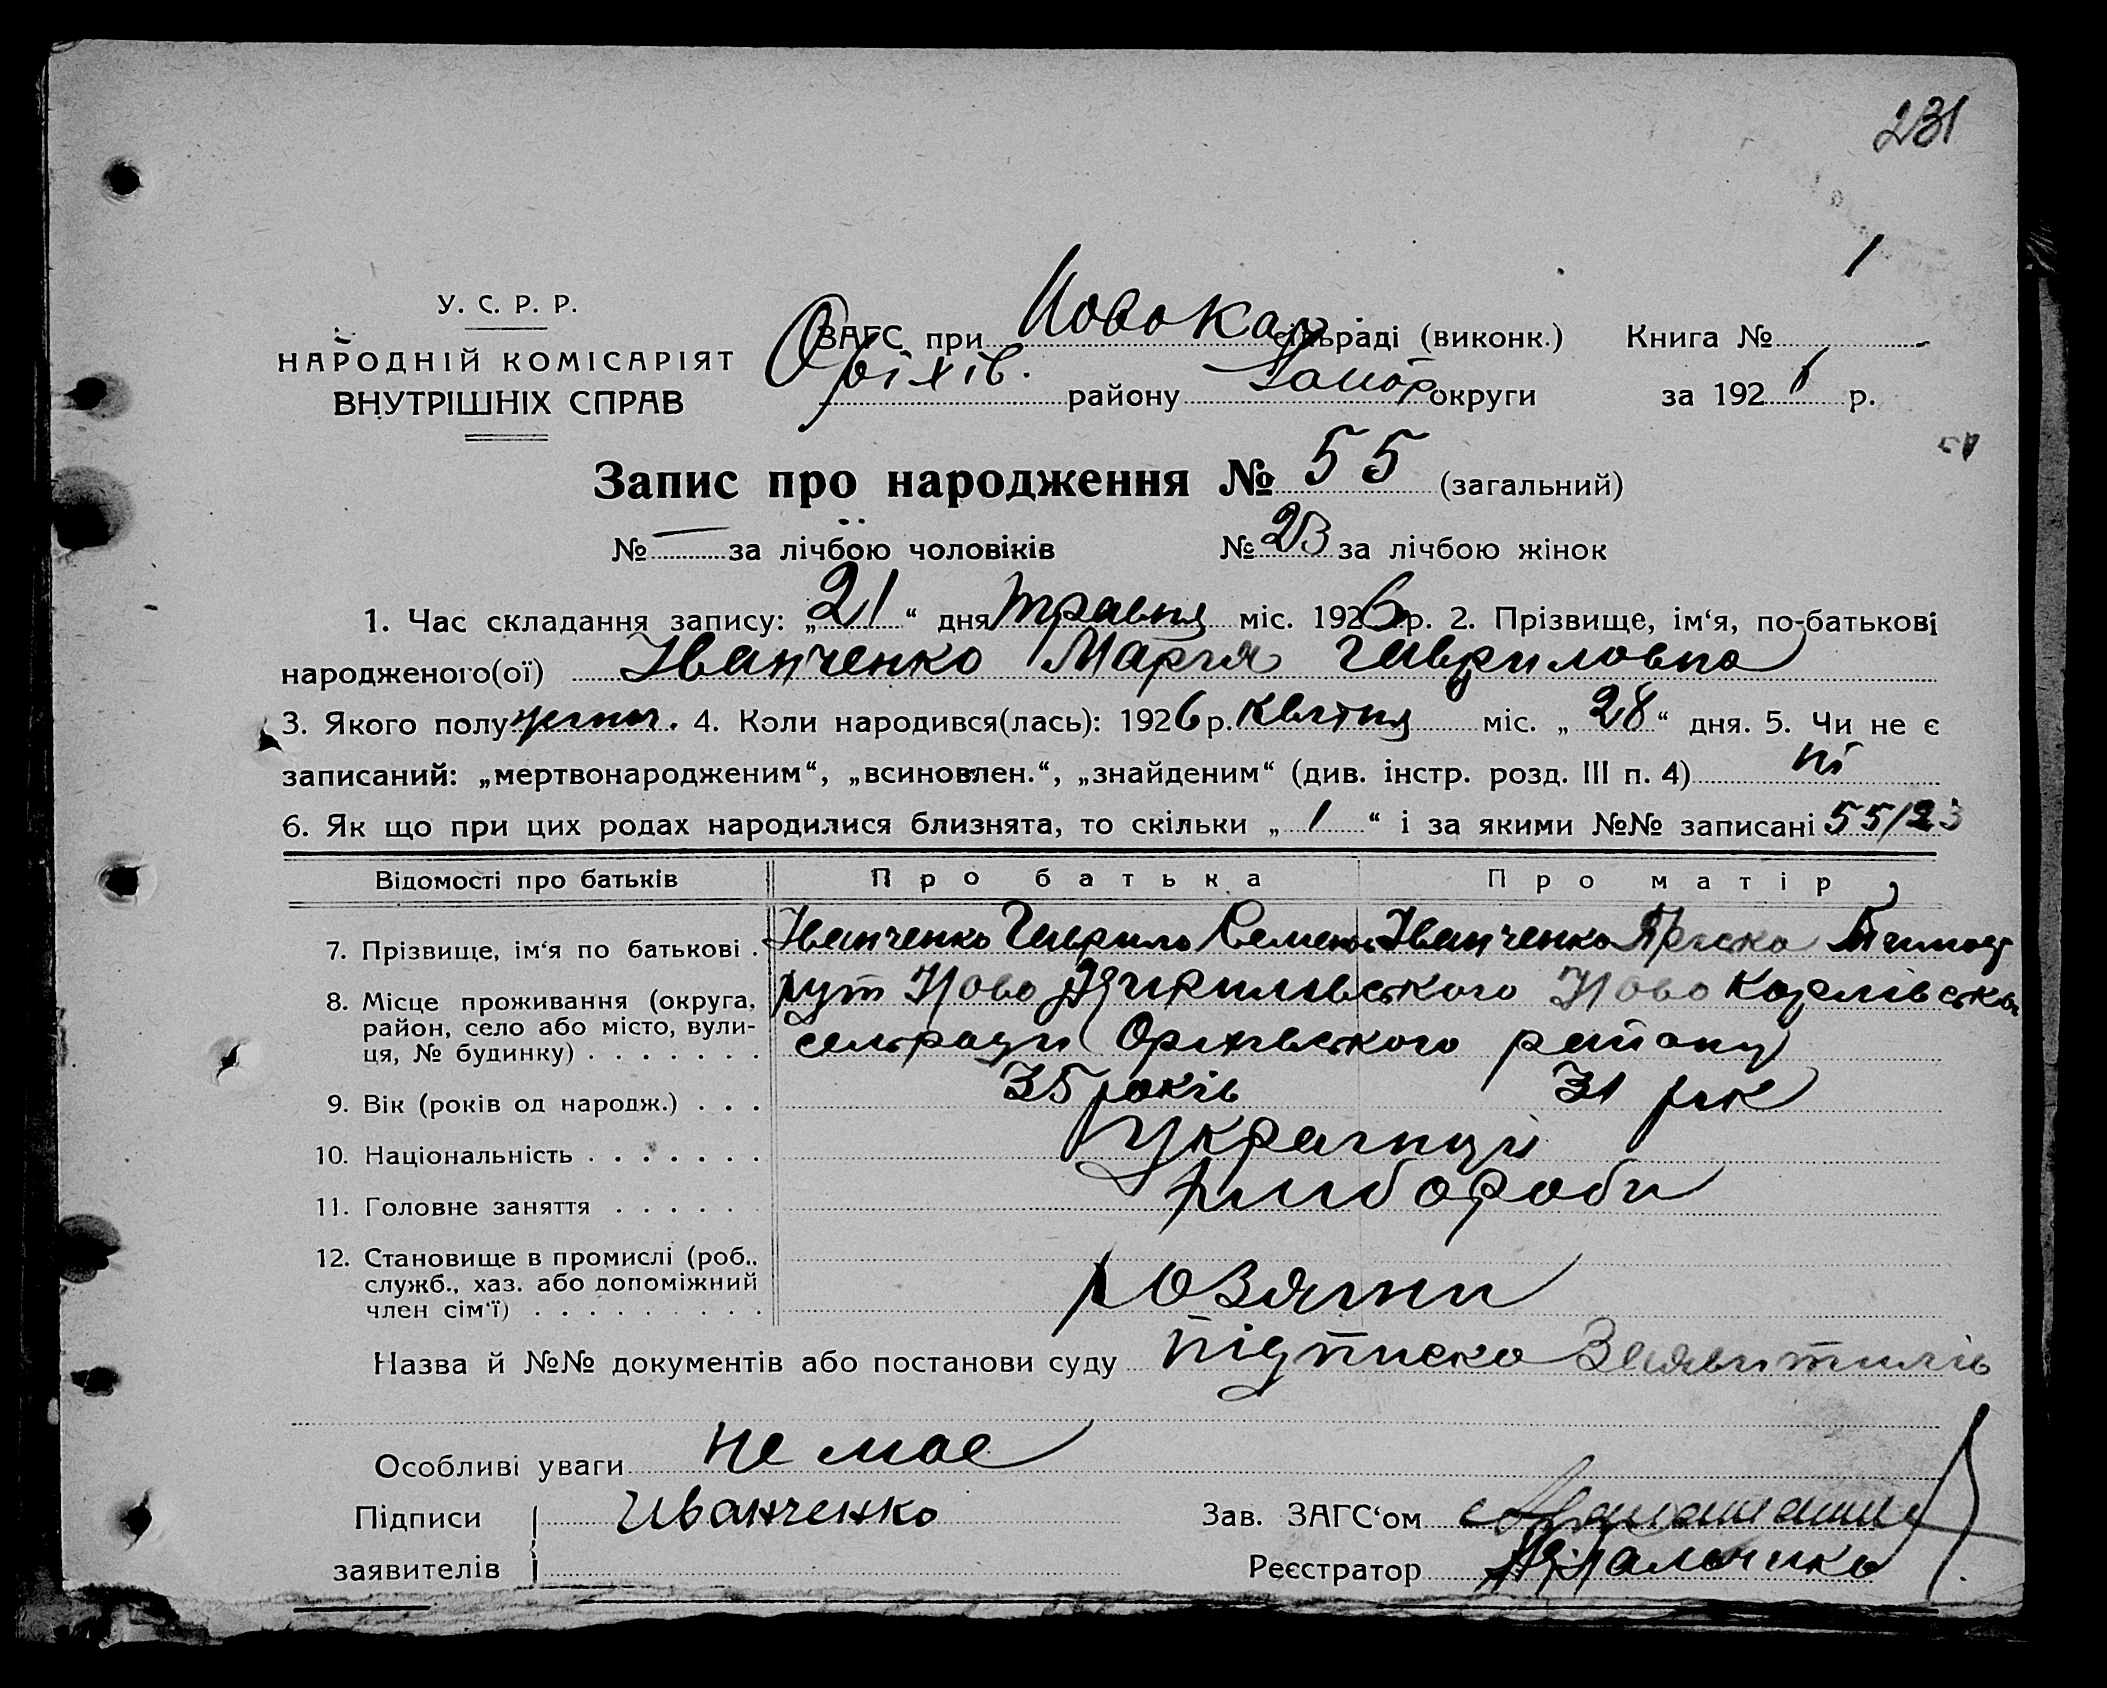 231
1
У. С. Р. Р.
НАРОДНІЙ КОМІСАРІЯТ
ВНУТРІШНІХ СПРАВ
ЗАГС при Новокар сільраді (виконк.) Книга №
Оріхів. району Запор округи за 1926 р.
Запис про народження № 55 (загальний)
№ — за лічбою чоловіків № 23 за лічбою жінок
1. Час складання запису: „21“ дня травня міс. 1926 р. 2. Прізвище, ім‘я, по-батькові
народженого(ої) Іванченко Марія Гавриловна
3. Якого полу жіноч. 4. Коли народився(лась): 1926 р. квітня міс. „28“ дня. 5. Чи не є
записаний: „мертвонародженим“, „всиновлен.“, „знайденим“ (див. інстр. розд. III п. 4) ні
6. Як що при цих родах народилися близнята, то скільки „1“ і за якими №№ записані 55/23
Відомості про батьків Про батька Про матір
7. Прізвище, ім‘я по батькові . Іванченко Гаврило Семенов Іванченко Пріська Тимоф
8. Місце проживання (округа, хут Ново Ново Карлівської
район, село або місто, вули- сельради Оріхівського району
ця, № будинку) . . . . . . .
9. Вік (років од народж.) . . . 35 років 31 рік
10. Національність . . . . . . . Українці
11. Головне заняття . . . . . . хлібороби
12. Становище в промислі (роб.,
служб., хаз. або допоміжний хозяїни
член сім‘ї) . . . . . . . . .
Назва й №№ документів або постанови суду підписка Заявителів
Особливі уваги не має
Підписи Иванченко Зав. ЗАГС‘ом
заявителів Реєстратор